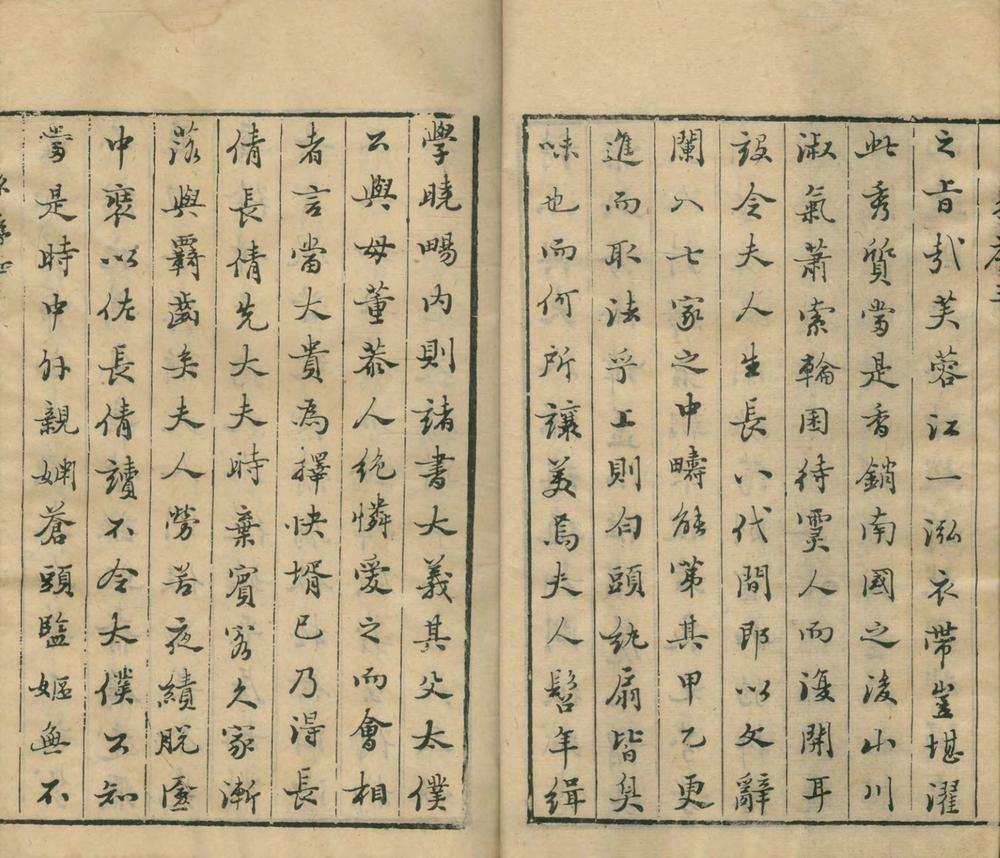 之旨哉芙蓉江一泓衣帶豈堪濯
此秀質當是香銷南國之後山川
淑氣蕭索輪囷待霙人而復開耳
設令夫人生長八代間即以文辭
闌入七家之中疇能第其甲乙更
進而取法乎上則白頭紈扇皆臭
味也而何所讓美焉夫人髫年緝
學曉暢內則諸書大義其父太僕
公與母董恭人絶憐愛之而會相
者言當大貴為擇快壻已乃得長
倩長倩先大夫時棄賓客久家漸
落與覇齒矣夫人勞苦夜績脫簪
中裹以佐長倩讀不令太僕公知
當是時中外親婣蒼頭監嫗無不